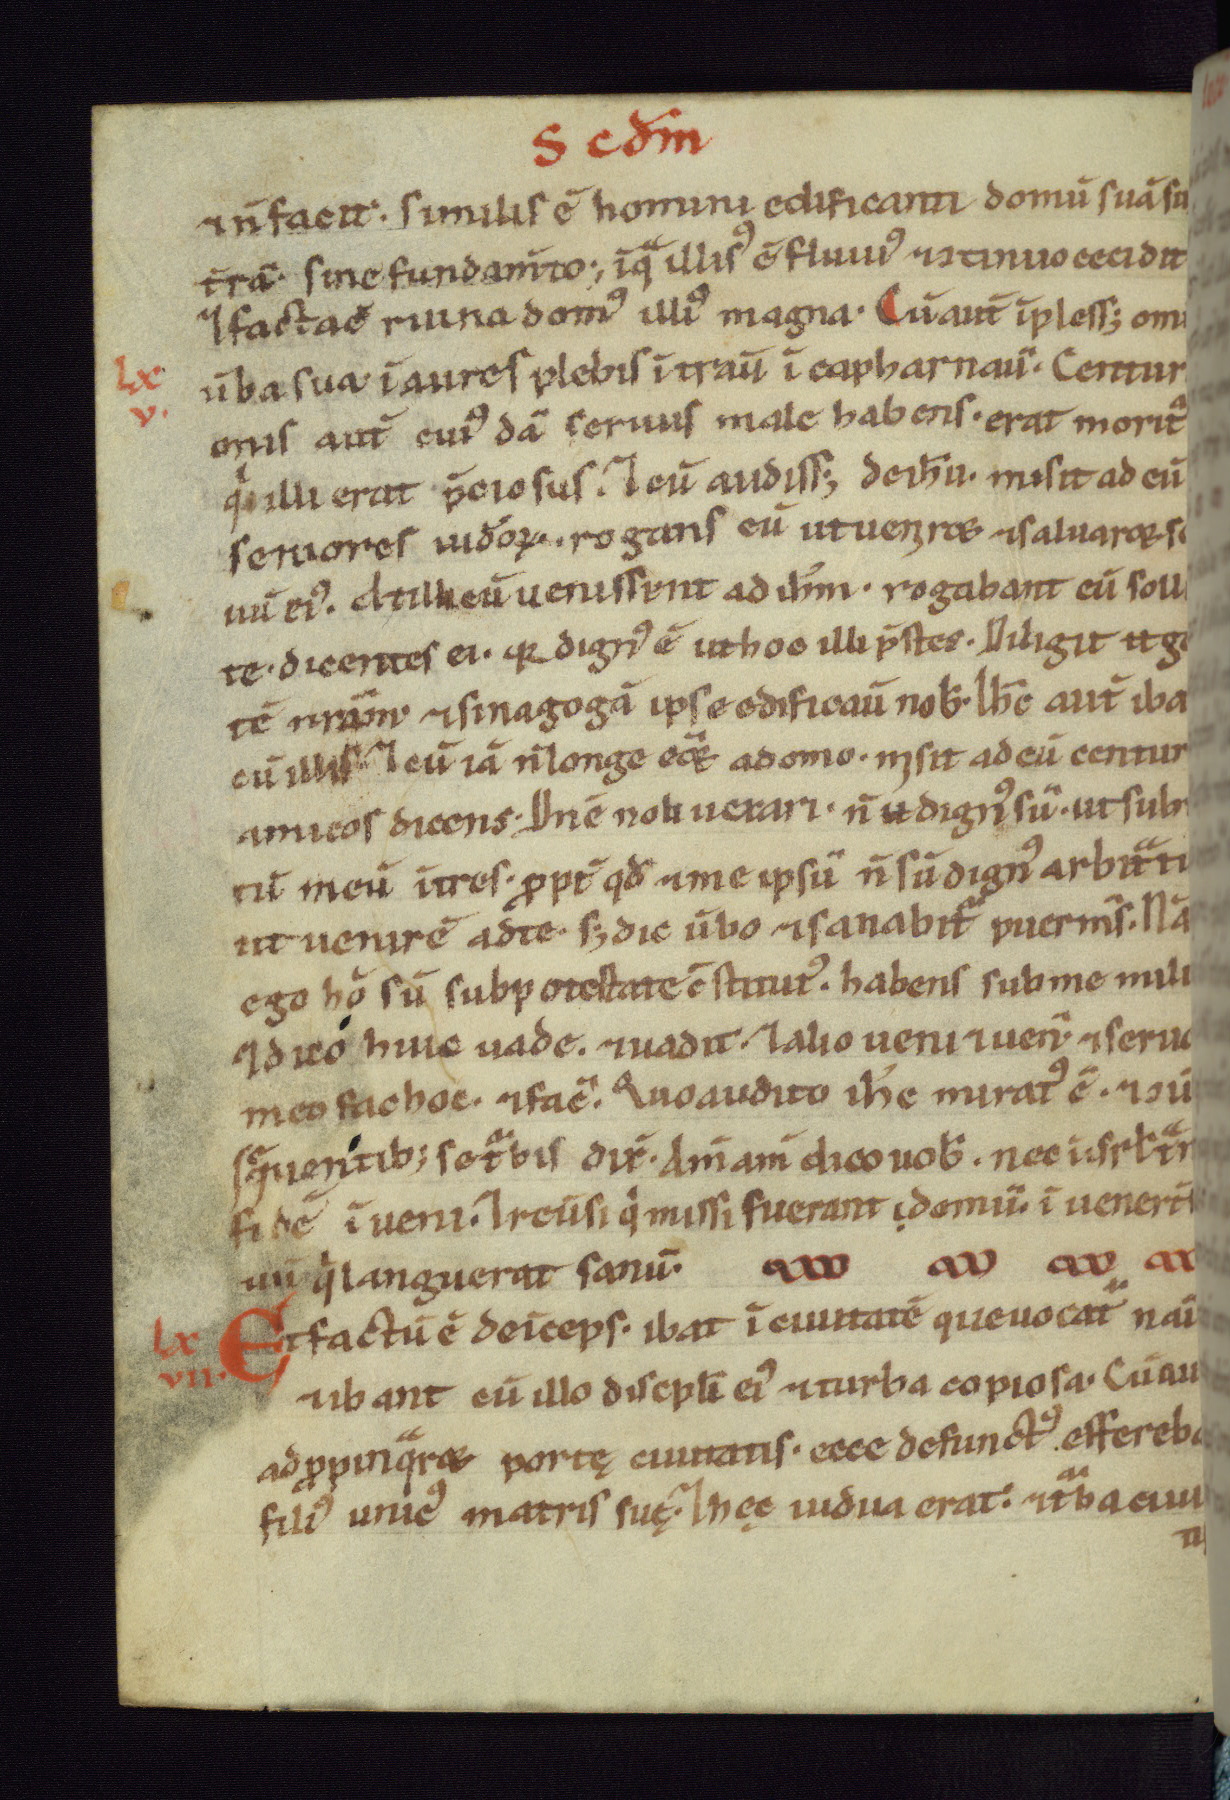 Scdm̄
⁊ n̄ facit. similis ē homini edificanti domū suā su
t̄rā. sine fundam̄to. ī qͣ illisꝰ ē fluuiꝰ ⁊ ↄtinuo cecidit
⁊ facta ē ruina domꝰ illiꝰ magna. Cū aut̄ īpless; om
ūba sua ī aures plebis ītrau̅ ī capharnaū. Centuri
Lx
v.
onis aut̄ cuiꝰdā seruus male habens. erat moritͣ
qͥ illi erat p̄ciosus. ⁊ cū audiss; de ih̅u. misit ad eū
seniores iudōꝝ. rogans eū ut ueniret ⁊ saluaret. s
uū eiꝰ. At illi cū uenissent ad ih̅m. rogabant eū soll
te. dicentes ei. qꝛ dignꝰ ē ut hoc illi p̄stes. Diligit
tē nr̄am ⁊ sinagogā ipse edificau̅ nob̅. Ih̅c aut̄ iba
cū illis. ⁊ cū iā n̄ longe eēt a domo. misit ad eū centur
amicos dicens. Dn̄e noli uexari. n̄ dignꝰ sū. ut sub
tū meū ītres. ꝓpt̄ qd̄ ⁊ me ipsū n̄ sū dignꝰ arbitͣt
ut uenirē ad te. s; dic ūbo ⁊ sanabit̄ puer m̄s. Nā
ego hō sū sub potestate ↄ̄stitutꝰ. habens sub me mili
⁊ dico huic uade. ⁊ uadit. ⁊ alio ueni ⁊ uen̄. ⁊ seruo
meo fac hoc. ⁊ fac̄. Quo audito ih̅c miratꝰ ē. ⁊ ↄū
sequentib; se tͥbis dix̄. Am̄ am̄ dico uob̅. nec ī isrl̄ tͣn
fidē īueni. ⁊ reūsi qͥ missi fuerant domū. īuener̄t
uū qͥ languerat sanū.
Lx
vii.
Et factū ē deīceps. ibat ī ciuitatē que uocat̄ naī
⁊ ibant cū illo discipl̄i eiꝰ ⁊ turba copiosa. Cū au
adꝓpinqͣret portę ciuitatis. ecce defunctꝰ effereba
filiꝰ unicꝰ matris suę. ⁊ hęc uidua erat. ⁊ tͥba ciui